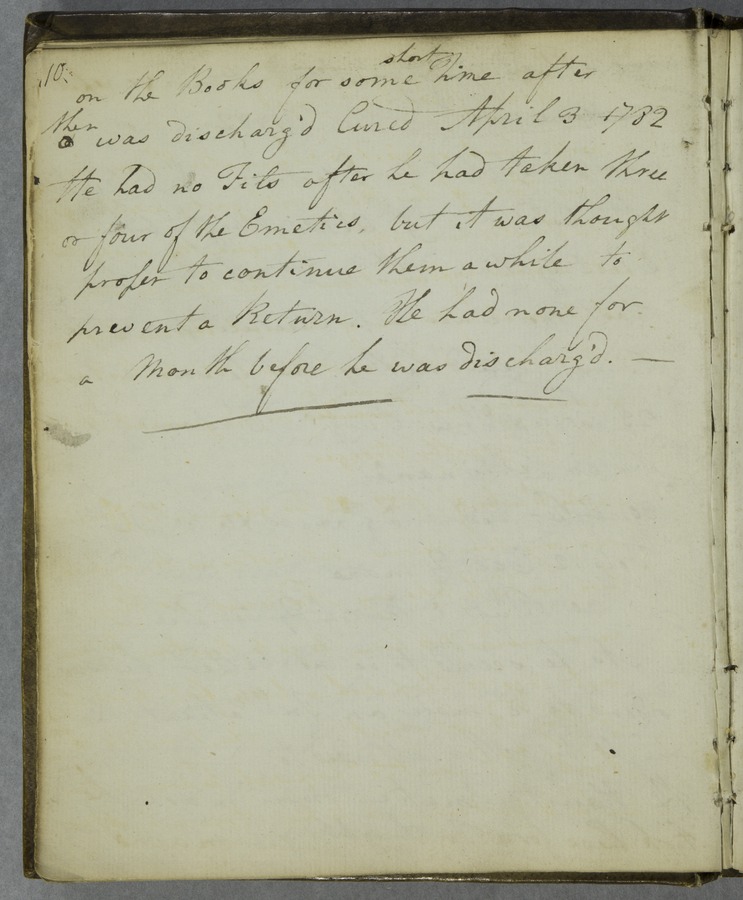 10.
on the Books for some short Time after
then was discharg'd Cured April 3 1782
He had no Fits after he had taken three
or four of the Emetics, but it was thought
proper to continue them awhile to
prevent a Return. He had none for
a Month before he was discharg'd. —